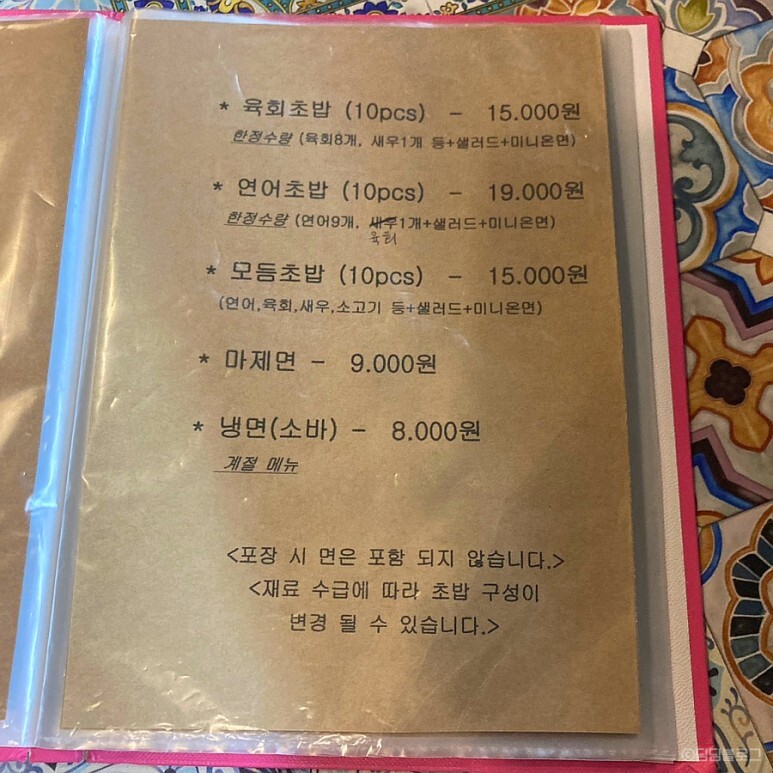 * 육회초밥 (10pcs) - 15.000원
한정수량 (육회8개, 새우1개 등+샐러드+미니온면)
* 연어초밥 (10pcs) - 19.000원
한정수량 (연어9개, 새우1개+샐러드+미니온면)
육회
* 모듬초밥 (10pcs) - 15.000원
(연어,육회,새우,소고기 등+샐러드+미니온면)
* 마제면 - 9.000원
* 냉면(소바) - 8.000원
계절 메뉴
<포장 시 면은 포함 되지 않습니다.>
<재료 수급에 따라 초밥 구성이
변경 될 수 있습니다.>
©딤딤블로그